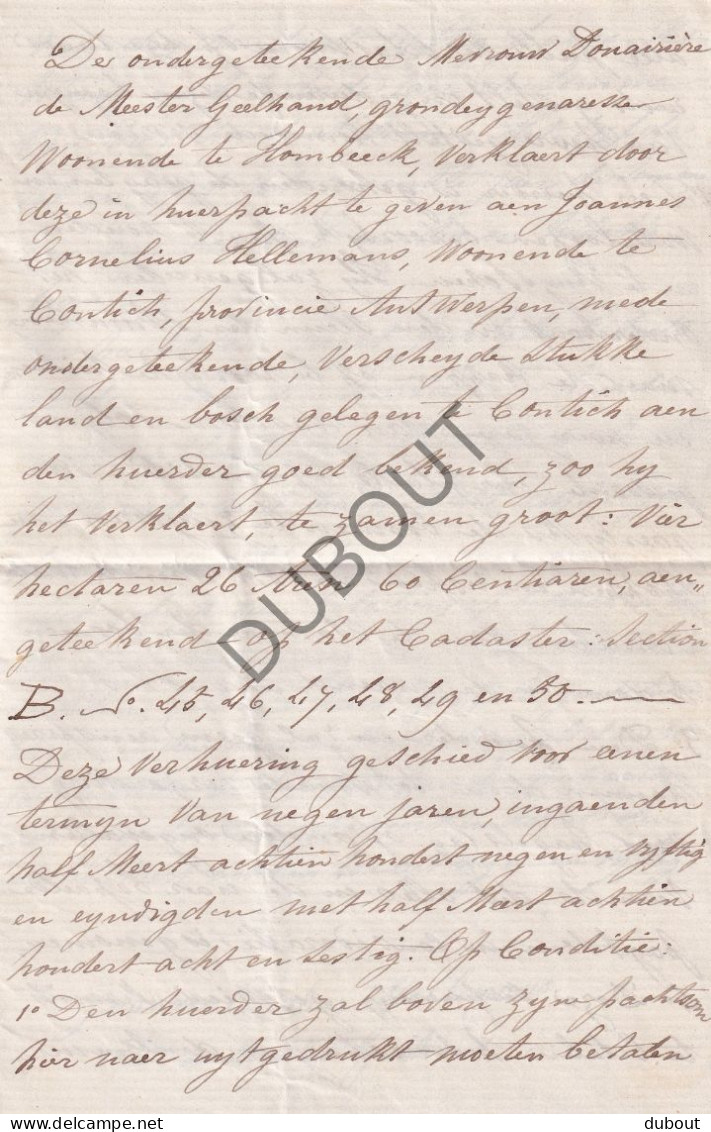 De ondergeteekende Mevrouw Douairière
de Meester Geelhand, grondeygenaresse
Woonende te Hombeeck, Verklaert door
deze in huerpacht te geven aen Joannes
Cornelius Hellemans, Woonende te
Contich, provincie Antwerpen, mede
ondergeteekende, Verscheyde Stukke
land en bosch gelegen te Contich aen
den huerder goed bekend, zoo hy
het Verklaert, te zamen groot: Vier
hectaren 26 Aren 60 Centiaren, aen„
geteekend op het Cadaster: Section
B. No. 45, 46, 47, 48, 49 en 50.
Deze Verhuering geschied voor eenen
termyn Van negen jaren, ingaenden
half Meert achtien hondert negen en vyftig
en eyndigden met half Meert achtien
hondert acht en sestig. Op Conditie:
1° Den huerder zal boven zyne pachtsom
hier naer uytgedrukt moeten betalen
DUBOUT
www.delcampe.net
dubout